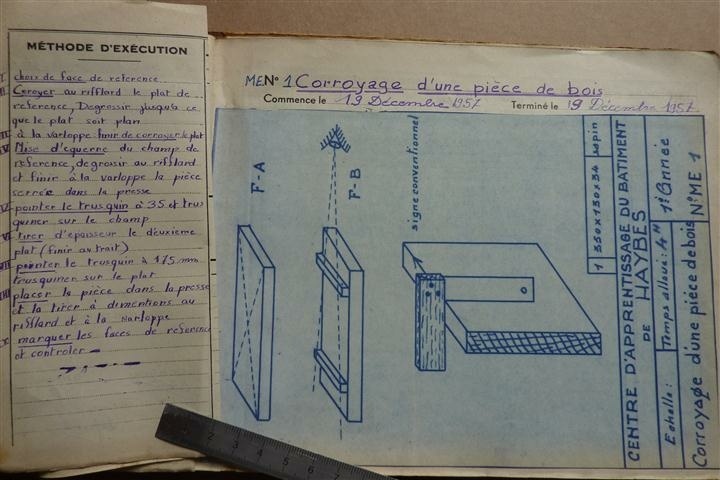 MÉTHODE D'EXÉCUTION
I choix de face de reference
II Coroyer au rifflard le plat de
reference, Degrossir jusqu'a ce
que le plat soit plan
III à la varloppe finir de corroyer le plat
IV Mise d'equerre du champ de
reference, degrosir au rifflard
et finir à la varloppe la pièce
serrée dans la presse
V pointer le trusquin à 35 et trus
quiner sur le champ
VI tirer d'epaisseur le deuxième
plat (finir au trait)
VII pointer le trusquin à 175 mm
trusquiner sur le plat
VIII placer la pièce dans la presse
et la tirer à dimentions au
rifflard et à la varloppe
marquer les faces de reference
et controler
ME N° 1 Corroyage d'une pièce de bois
Commencé le 19 Décembre 1957 Terminé le 19 Décembre 1957
F-A
F-B
signe conventionnel
1 350x130x34 sapin
CENTRE D'APPRENTISSAGE DU BATIMENT
DE
HAYBES
Echelle: Temps alloué: 4H 1è Année
Corroyage d'une pièce de bois N° ME 1
2 3 4 5 6